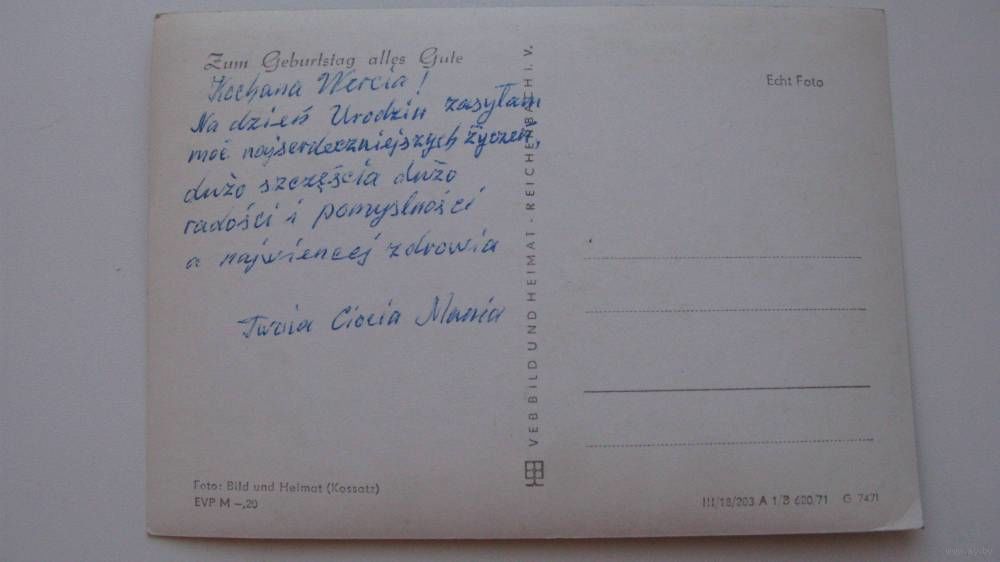 Zum Geburtstag alles Gute
Kochana Wercia!
Na dzień Urodzin zasyłam
moć najserdeczniejszych życzeń,
dużo szczęścia dużo
radości i pomyslności
a najwiencej zdrowia
Twoia Ciocia Mania
Foto: Bild und Heimat (Kossatz)
EVP M –,20
VEB BILD UND HEIMAT · REICHENBACH I. V.
Echt Foto
III/18/203 A 1/B 600/71 G 7471